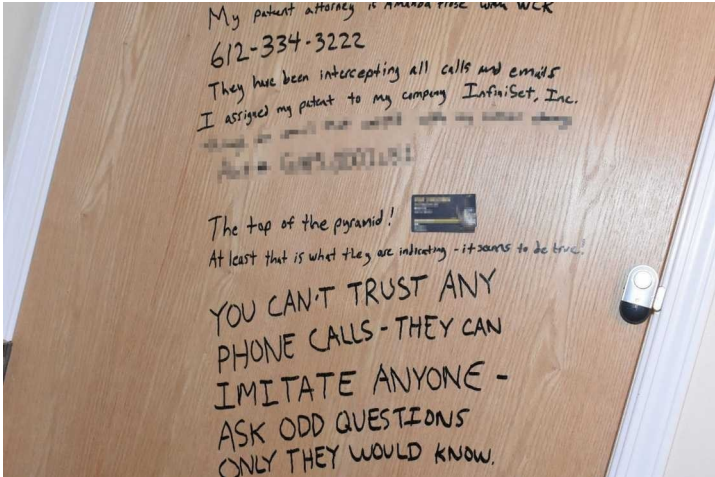 My patent attorney is Amanda Prose with WCK
612-334-3222
They have been intercepting all calls and emails
I assigned my patent to my company InfiniSet, Inc.
The top of the pyramid!
At least that is what they are indicating - it seems to be true!
YOU CAN'T TRUST ANY
PHONE CALLS - THEY CAN
IMITATE ANYONE -
ASK ODD QUESTIONS
ONLY THEY WOULD KNOW.